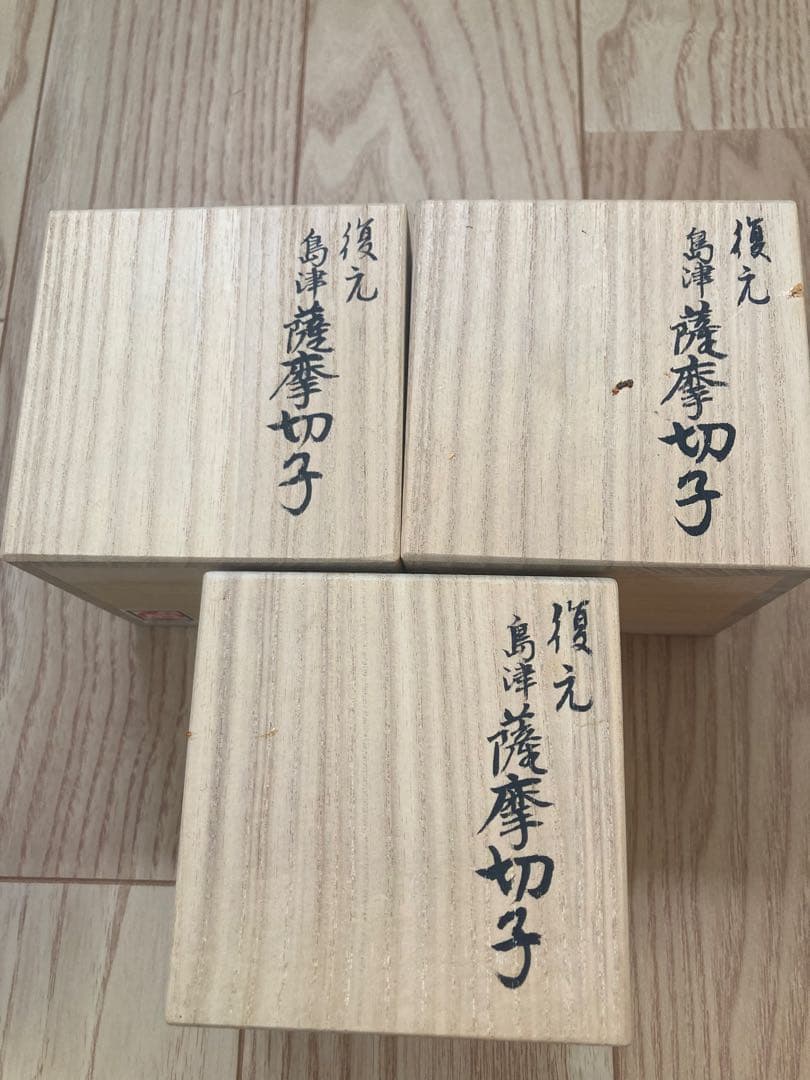 復元
島津薩摩切子
復元
島津薩摩切子
復元
島津薩摩切子